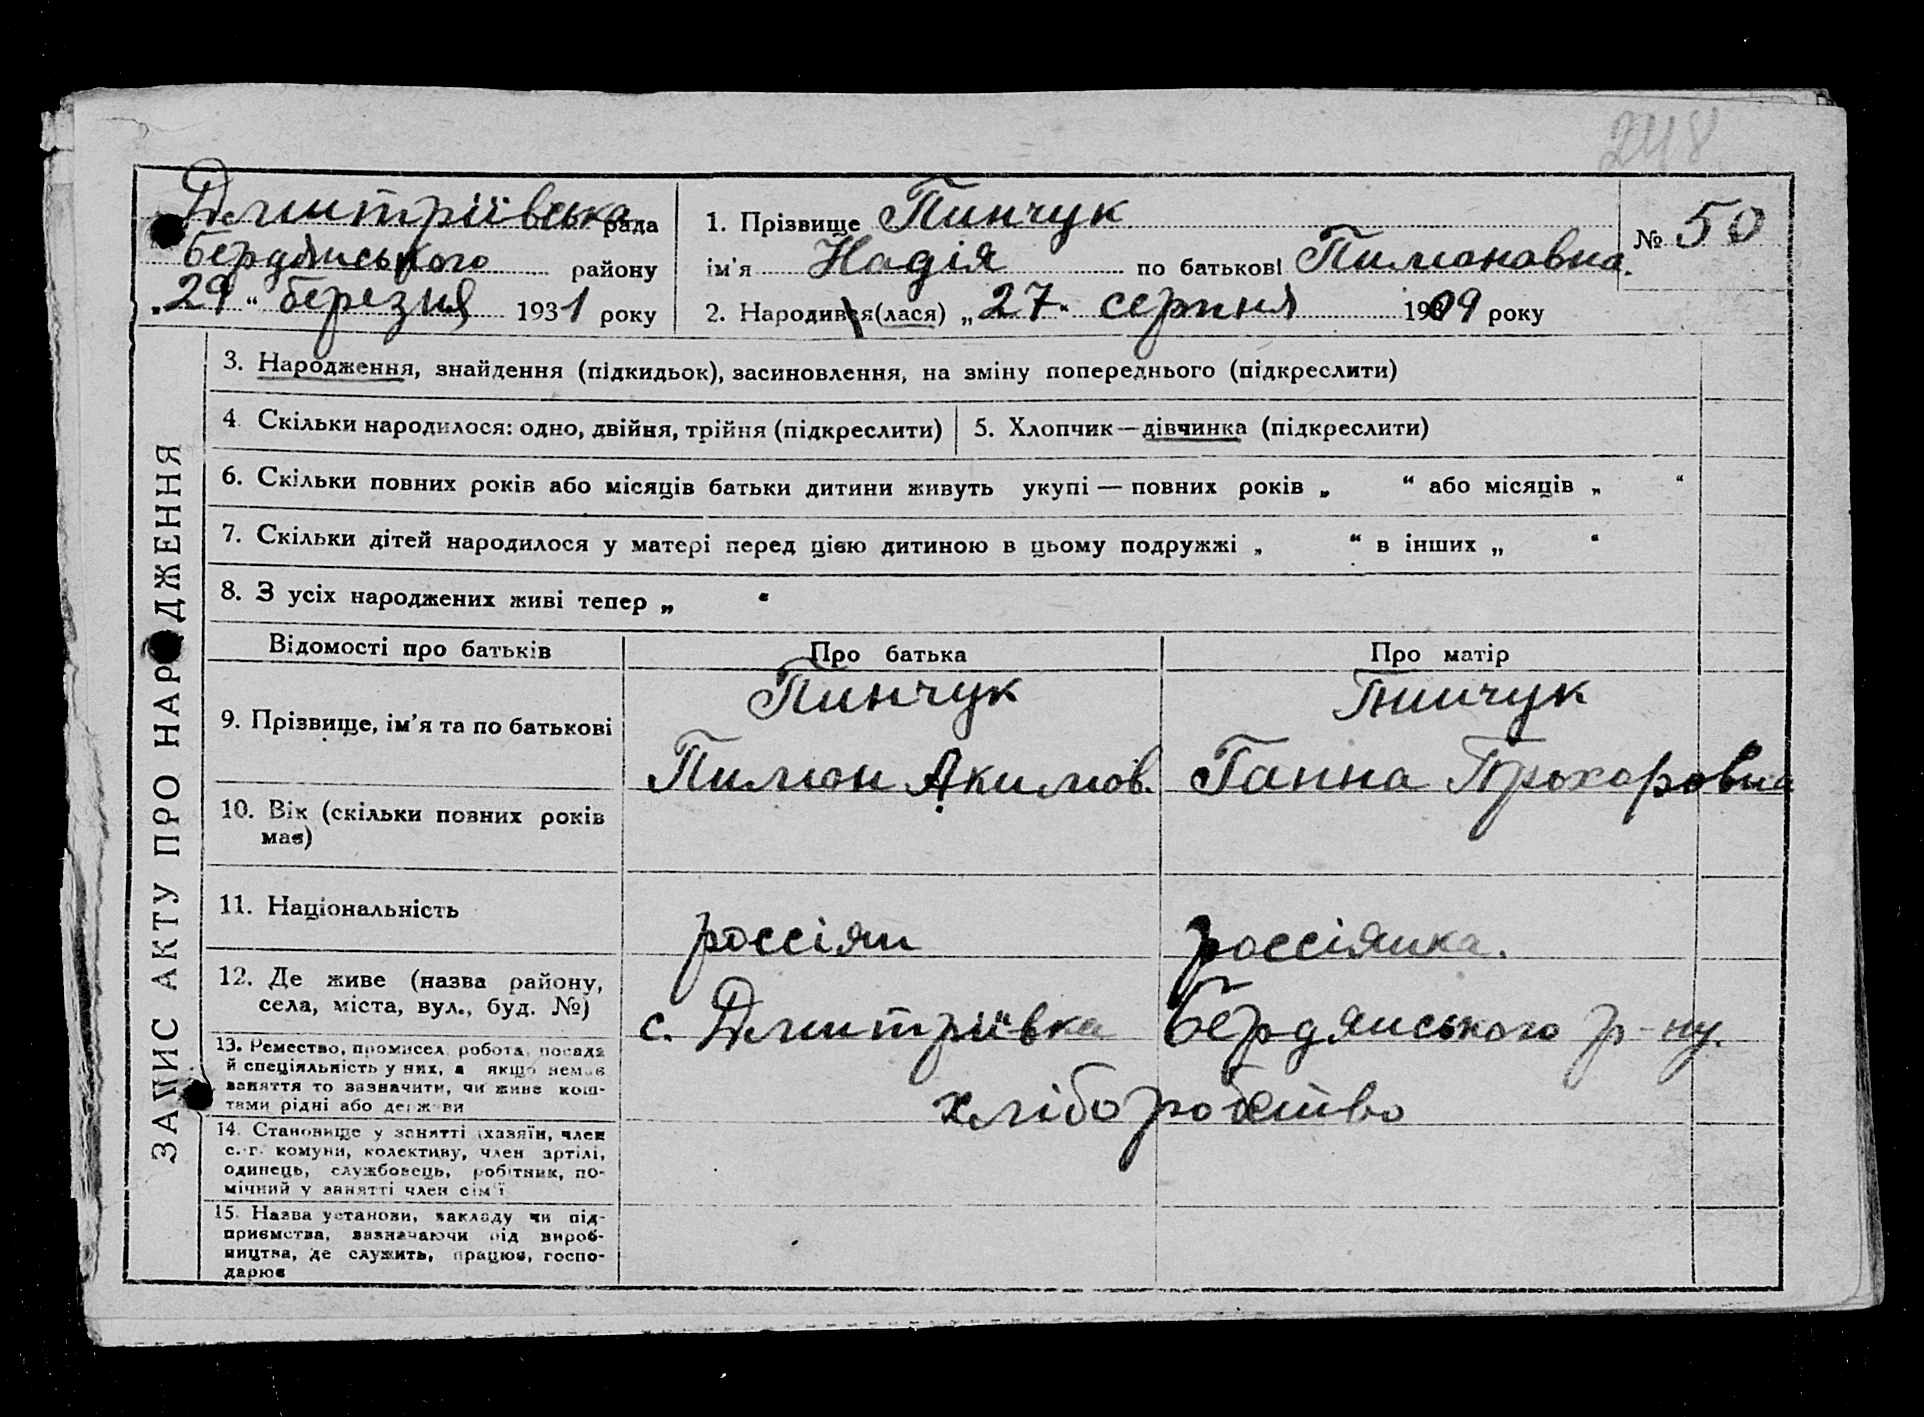 248
Дмитріївська рада
Бердянського району
„29“ березня 1931 року
1. Прізвище Пинчук
ім'я Надія по батькові Пимоновна.
2. Народився(лася) „27“ серпня 1909 року
№ 50
ЗАПИС АКТУ ПРО НАРОДЖЕННЯ
3. Народження, знайдення (підкидьок), засиновлення, на зміну попереднього (підкреслити)
4. Скільки народилося: одно, двійня, трійня (підкреслити)
5. Хлопчик—дівчинка (підкреслити)
6. Скільки повних років або місяців батьки дитини живуть укупі — повних років „ “ або місяців „ “
7. Скільки дітей народилося у матері перед цією дитиною в цьому подружжі „ “ в інших „ “
8. З усіх народжених живі тепер „ “
Відомості про батьків Про батька Про матір
9. Прізвище, ім'я та по батькові
Пинчук
Пимон Акимов.
Пинчук
Ганна Прохоровна
10. Вік (скільки повних років
має)
11. Національність
россіян
россіянка.
12. Де живе (назва району,
села, міста, вул., буд. №)
с. Дмитріївка Бердянського р-ну.
13. Ремество, промисел, робота, посада
й спеціяльність у них, а якщо немає
заняття то зазначити, чи живе кош-
тами рідні або держави
хліборобство
14. Становище у занятті (хазяїн, член
с.-г. комуни, колективу, член артілі,
одинець, службовець, робітник, по-
мічний у занятті член сім'ї
15. Назва установи, закладу чи під-
приємства, зазначаючи рід вироб-
ництва, де служить, працює, госпо-
дарює